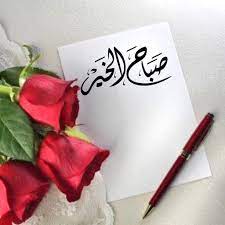 صَبَاحُ الخَيْرُ